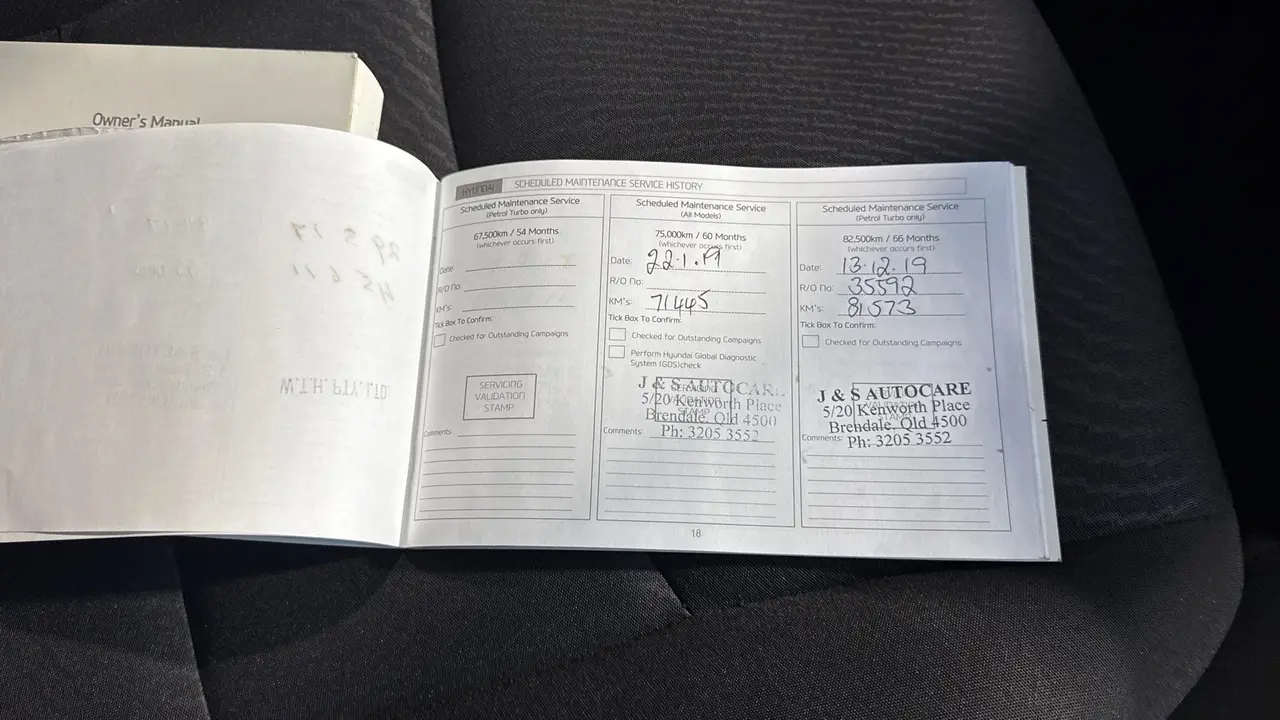 Owner's Manual
HYUNDAI SCHEDULED MAINTENANCE SERVICE HISTORY
Scheduled Maintenance Service
(Petrol Turbo only)
67,500km / 54 Months
(whichever occurs first)
Date:
R/O No:
KM's:
Tick Box To Confirm:
Checked for Outstanding Campaigns
SERVICING
VALIDATION
STAMP
Comments:
Scheduled Maintenance Service
(All Models)
75,000km / 60 Months
(whichever occurs first)
Date: 22.1.19
R/O No:
KM's: 71445
Tick Box To Confirm:
Checked for Outstanding Campaigns
Perform Hyundai Global Diagnostic
System (GDS)check
J & S AUTOCARE
5/20 Kenworth Place
Brendale. Qld 4500
Ph: 3205 3552
Comments:
Scheduled Maintenance Service
(Petrol Turbo only)
82,500km / 66 Months
(whichever occurs first)
Date: 13.12.19
R/O No: 35592
KM's: 81573
Tick Box To Confirm:
Checked for Outstanding Campaigns
J & S AUTOCARE
5/20 Kenworth Place
Brendale. Qld 4500
Ph: 3205 3552
Comments:
18